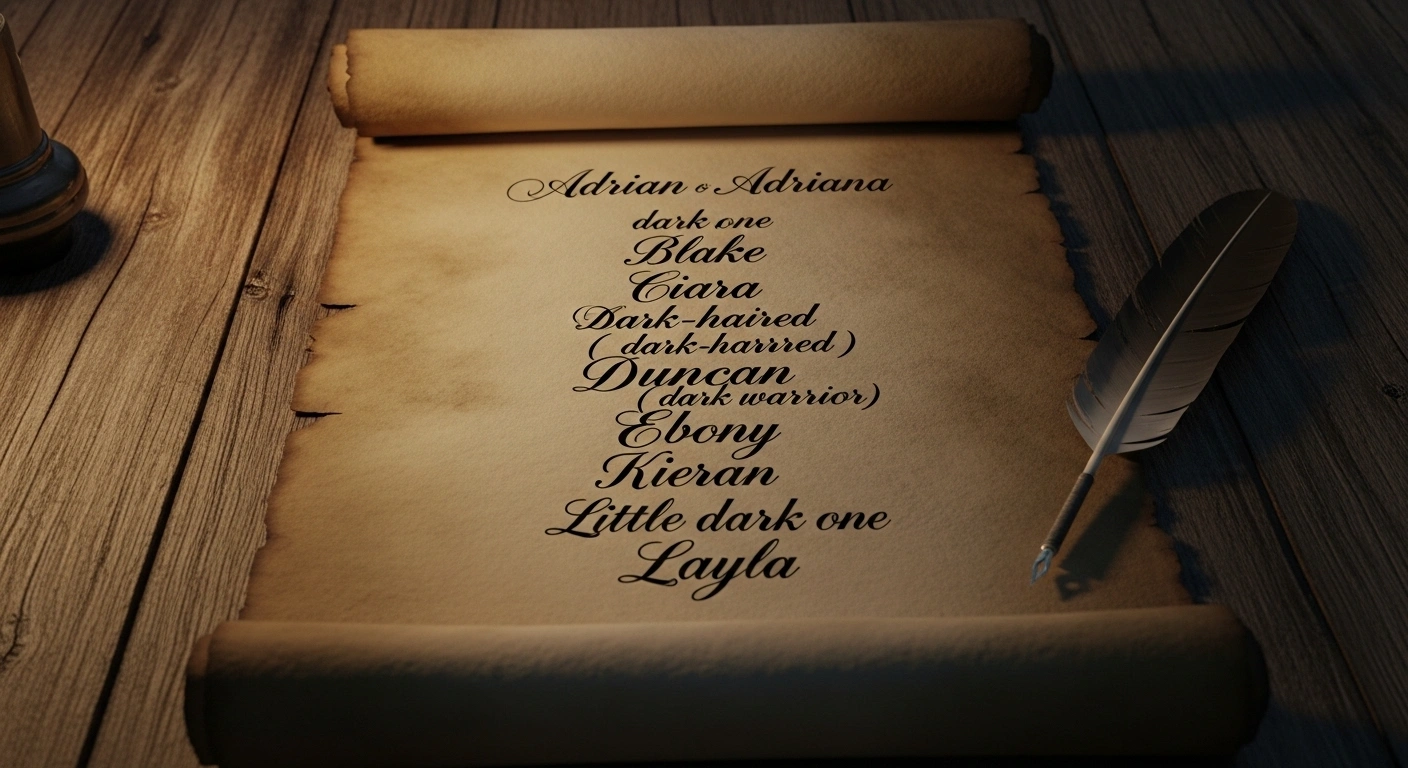 Adrian o Adriana
dark one
Blake
Ciara
Dark-haired
( dark-harrred )
Duncan
(dark warrior)
Ebony
Kieran
Little dark one
Layla